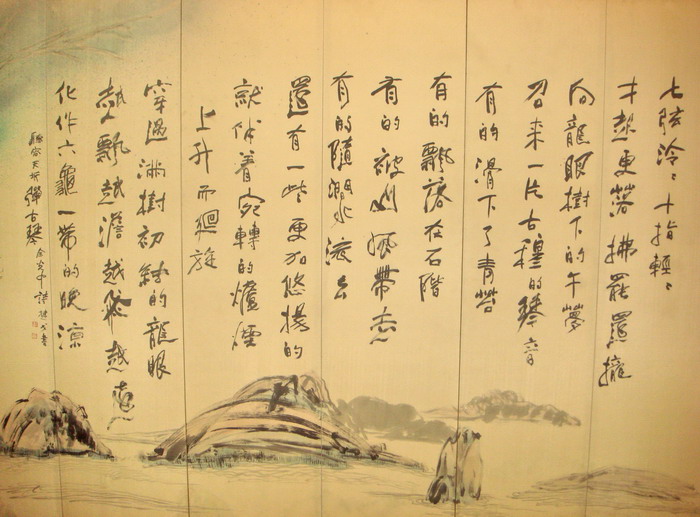 七弦泠泠十指輕輕
才起更落拂罷還攏
向龍眼樹下的午夢
召來一片古穆的琴音
有的滑下了青苔
有的飄落在石階
有的被山風帶走
有的隨澗水流去
還有一些更加悠揚的
就伴着宛轉的爐煙
上升而迴旋
穿過滿樹初熟的龍眼
越飄越澹越飛越遠
化作六龜一帶的晚涼
聽容天圻彈古琴 余光中詩 書